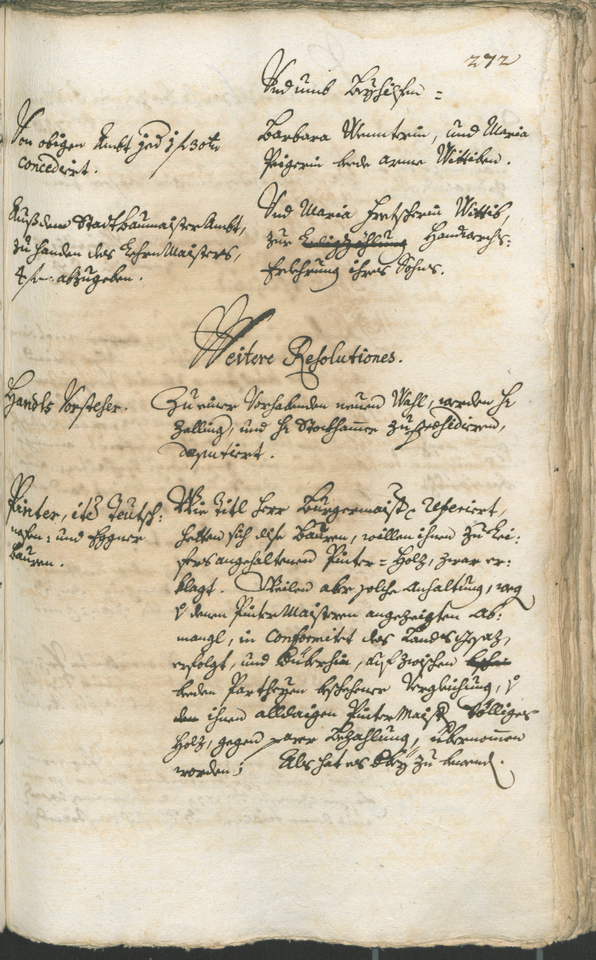 272
Und umb Beyhilfen =
Von obigen Ambt jed 1 f 30 kr
concedirt.
Barbara Wenntrin, und Maria
Peigerin beede arme Wittiben.
Auß dem Stadtbaumaister Ambt,
zu handen des LehrnMaisters,
4 f abzugeben.
Und Maria Wittib,
zur Handwerchs:
Erlehrnung ihres Sohns.
Weitere Resolutiones.
Handls Vorsteher.
Zu einer Vorhabenden neuen Wahl, werden H:
Zallinger, und H: Stockhamer zu præsidiren,
deputiert.
Pinter, ite Teutsch:
nofen: und Eggner
Bauren.
Wie Titl Herr Burgermaist: Referiert,
hetten sich dise Bauren, willen ihnen zu Lei:
fers angehaltenen Pinter = Holz, zwar er:
klagt. Weilen aber solche Anhaltung, weg
denen PinterMaistern angezeigten Ab:
mangl, in Conformitet des Landtsgsaz,
erfolgt, und hüterhin, auf zwischen
beeden Partheyen beschehener Vergleichung, v
ihnen alldaigen PinterMaist: völliges
Holz, gegen parer Bezahlung, übernommen
worden; Als hat es dabey zu bewend.